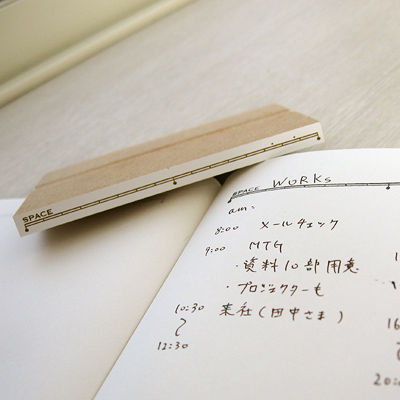 SPACE
SPACE WORKS
am:
8:00 メールチェック
9:00 MTG
・資料10部用意
・プロジェクターも
10:30 来社(田中さま)
〜
12:30
16
20: